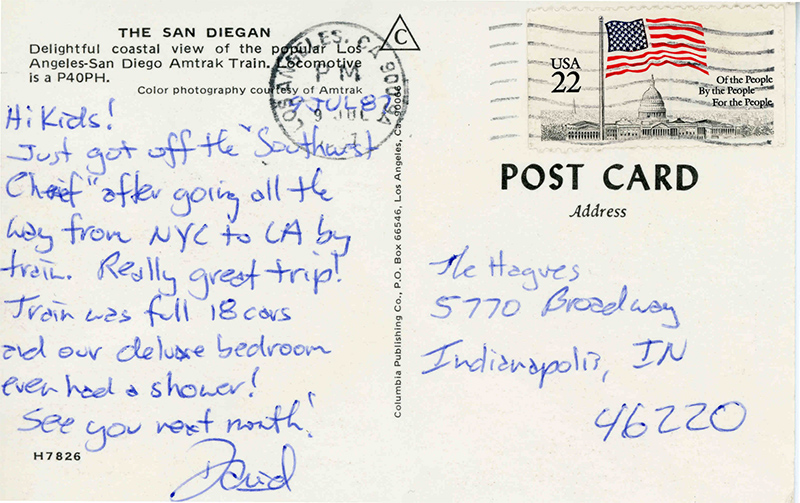 THE SAN DIEGAN
Delightful coastal view of the popular Los
Angeles-San Diego Amtrak Train. Locomotive
is a P40PH.
Color photography courtesy of Amtrak
9 JUL 87
Hi Kids!
Just got off the "Southwest
Chief" after going all the
way from NYC to LA by
train. Really great trip!
Train was full 18 cars
and our deluxe bedroom
even had a shower!
See you next month!
David
H7826
C
LOS ANGELES, CA 900
PM
9 JUL
Columbia Publishing Co., P.O. Box 66546, Los Angeles, Ca. 90066
USA
22
Of the People
By the People
For the People
POST CARD
Address
The Hagues
5770 Broadway
Indianapolis, IN
46220